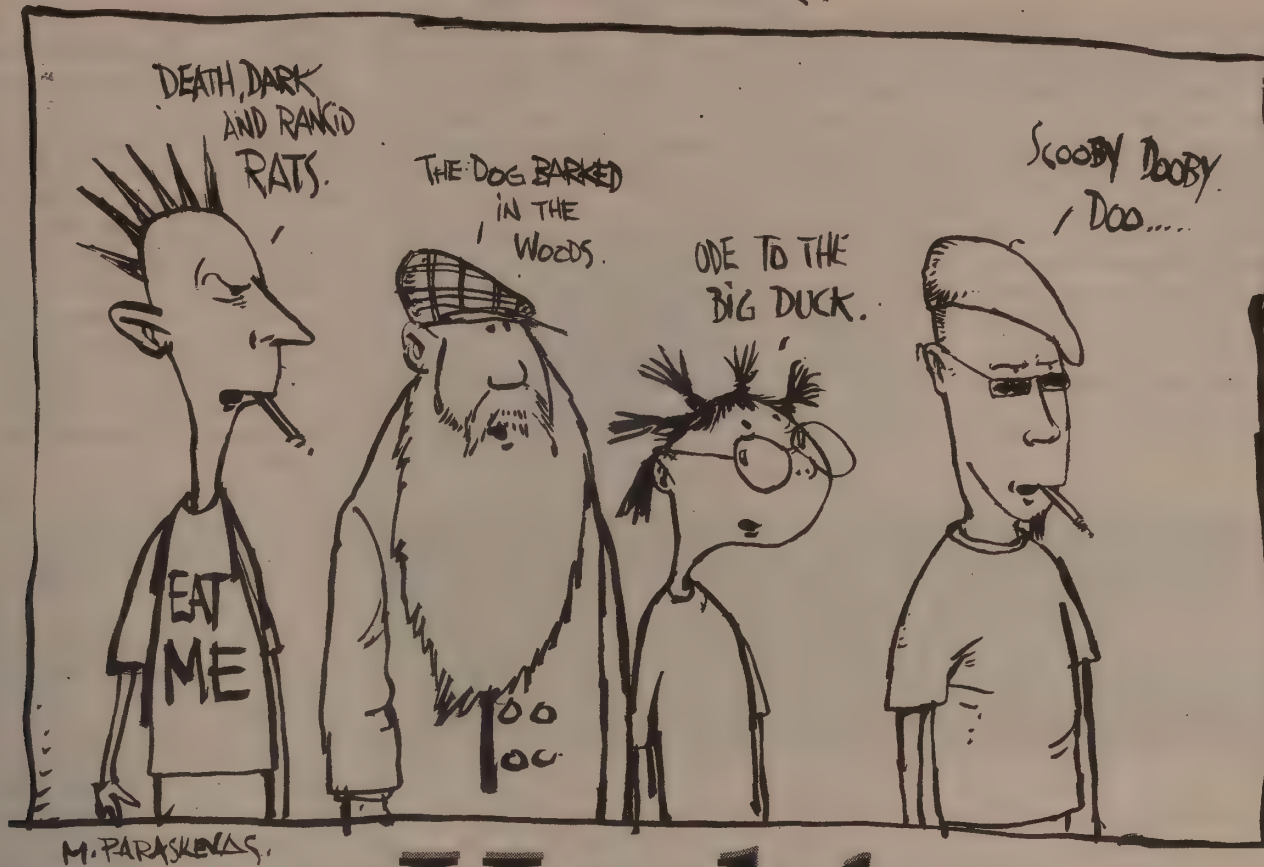 DEATH, DARK
AND RANCID
RATS.
THE DOG BARKED
IN THE
WOODS.
ODE TO THE
BIG DUCK.
SCOOBY DOOBY
DOO.....
EAT
ME
M. PARASKEVAS.